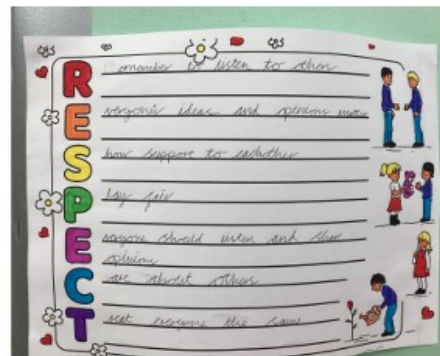 Remember to listen to others
Everyone's ideas and opinions matter
Show support to eachother
Play fair
Everyone should listen and share
opinions
Care about others
Treat everyone the same